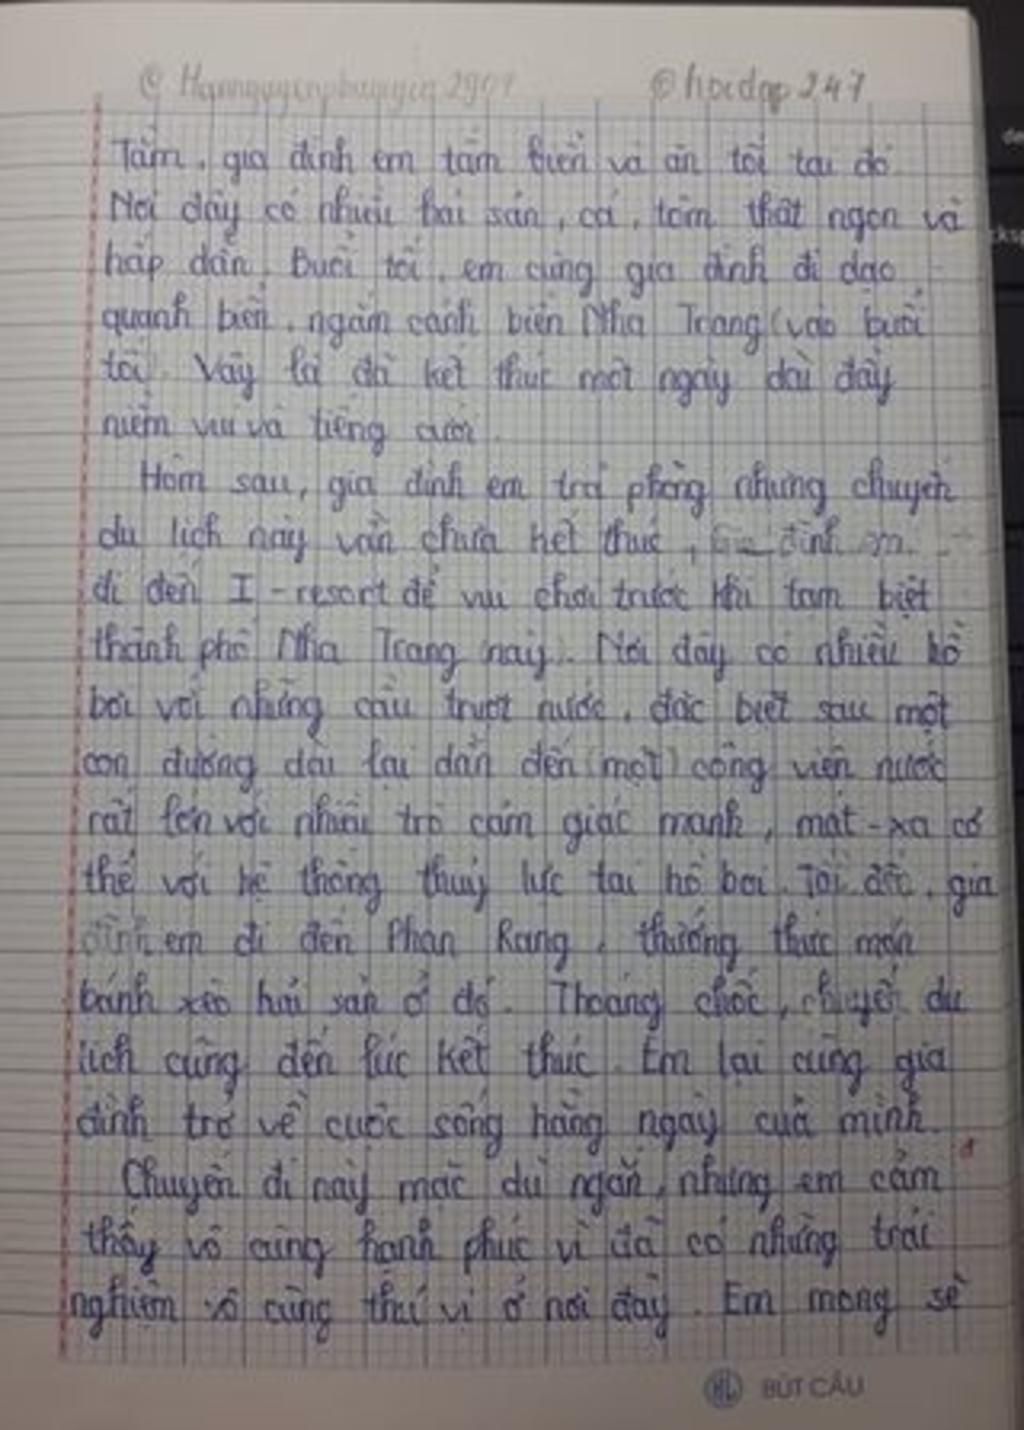 © hoidap247
Tắm, gia đình em tắm biển và ăn tối tại đó
Nơi đây có nhiều hải sản, cá, tôm thật ngon và
hấp dẫn. Buổi tối, em cùng gia đình đi dạo
quanh biển, ngắm cảnh biển Nha Trang (vào buổi
tối). Vậy là đã kết thúc một ngày dài đầy
niềm vui và tiếng cười.
Hôm sau, gia đình em trả phòng nhưng chuyến
du lịch này vẫn chưa kết thúc, đình em
đi đến I-resort để vui chơi trước khi tạm biệt
thành phố Nha Trang này. Nơi đây có nhiều hồ
bơi với những cầu trượt nước, đặc biệt sau một
con đường dài lại dẫn đến (một) công viên nước
rất lớn với nhiều trò cảm giác mạnh, mát-xa cơ
thể với hệ thống thuỷ lực tại hồ bơi. gia
đình em đi đến Phan Rang, thưởng thức món
bánh xèo hải sản ở đó. Thoáng chốc, chuyến du
lịch cũng đến lúc kết thúc. Em lại cùng gia
đình trở về cuộc sống hằng ngày của mình.
Chuyến đi này mặc dù ngắn, nhưng em cảm
thấy vô cùng hạnh phúc vì đã có những trải
nghiệm vô cùng thú vị ở nơi đây. Em mong sẽ
BÚT CÂU